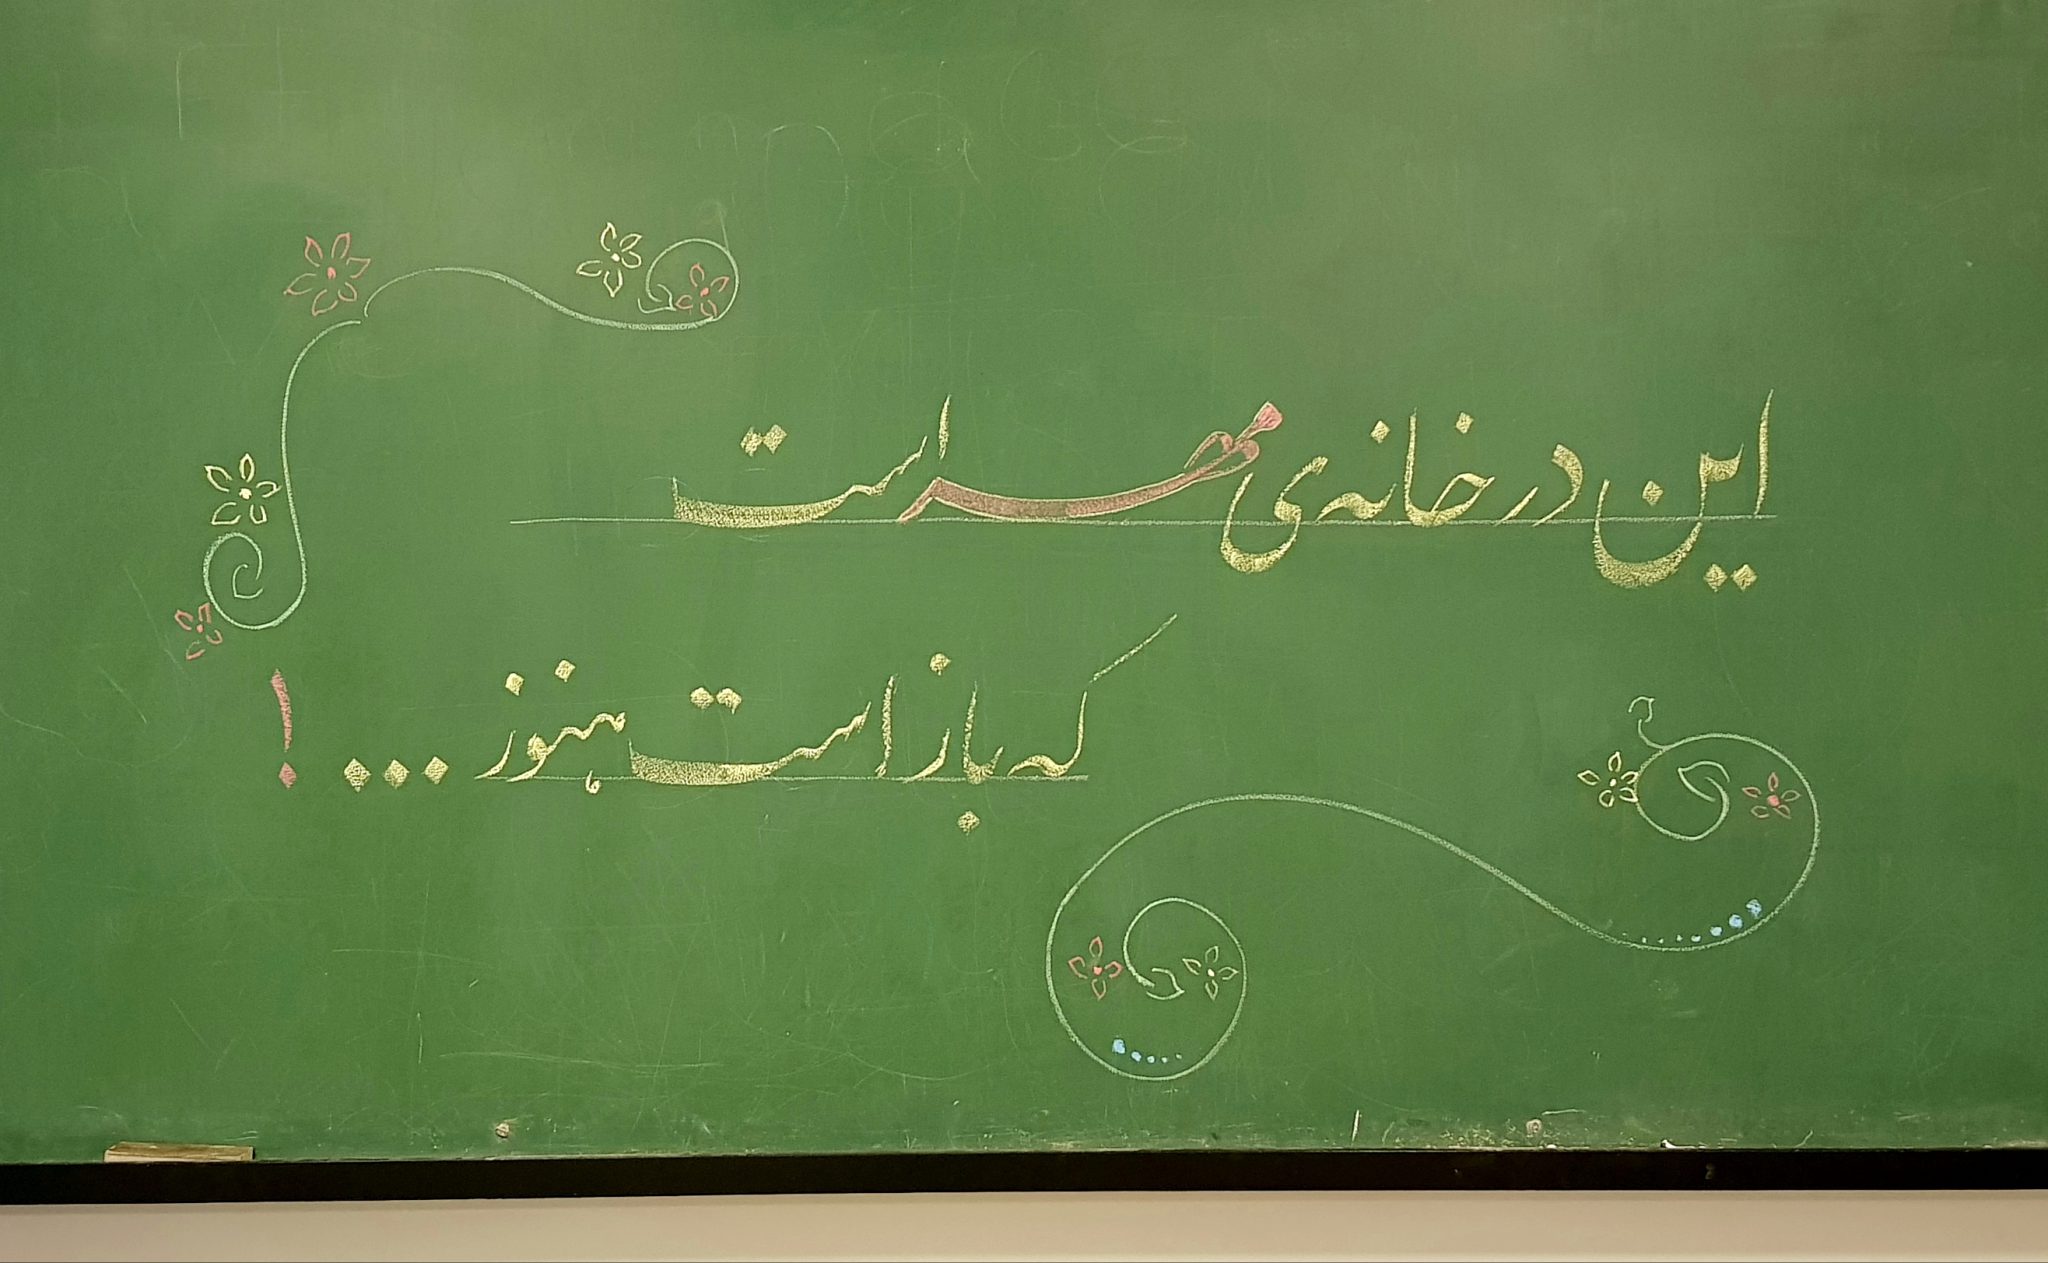 این در خانه‌ی مهر است
که باز است هنوز ... !